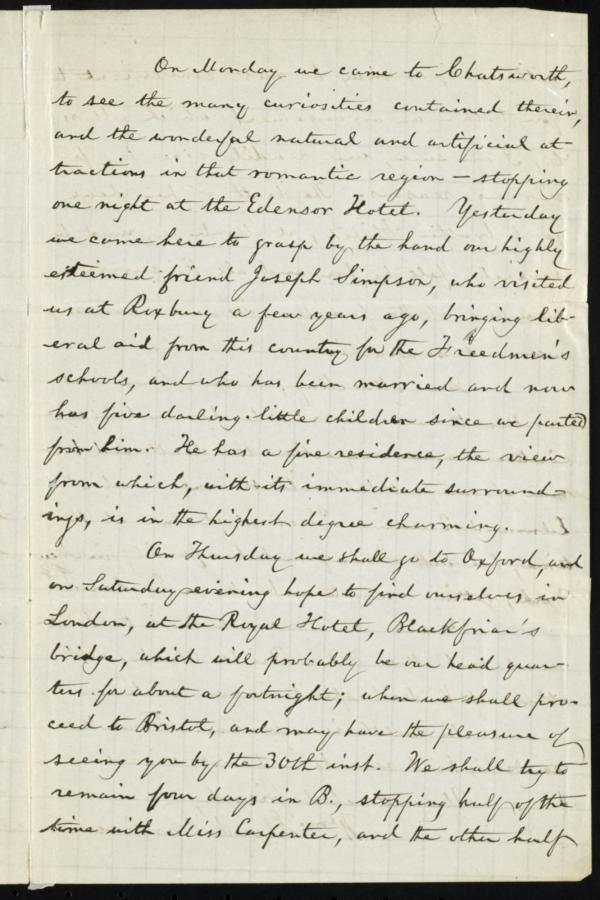 On Monday we came to Chatsworth,
to see the many curiosities contained therein,
and the wonderful natural and artificial at-
tractions in that romantic region — stopping
one night at the Edensor Hotel. Yesterday
we came here to grasp by the hand our highly
esteemed friend Joseph Simpson, who visited
us at Roxbury a few years ago, bringing lib-
eral aid from this country for the Freedmen's
schools, and who has been married and now
has five darling little children since we parted
from him. He has a fine residence, the view
from which, with its immediate surround-
ings, is in the highest degree charming.
On Thursday we shall go to Oxford, and
on Saturday evening hope to find ourselves in
London, at the Royal Hotel, Blackfriar's
bridge, which will probably be our head quar-
ters for about a fortnight; when we shall pro-
ceed to Bristol, and may have the pleasure of
seeing you by the 30th inst. We shall try to
remain four days in B., stopping half of the
time with Miss Carpenter, and the other half